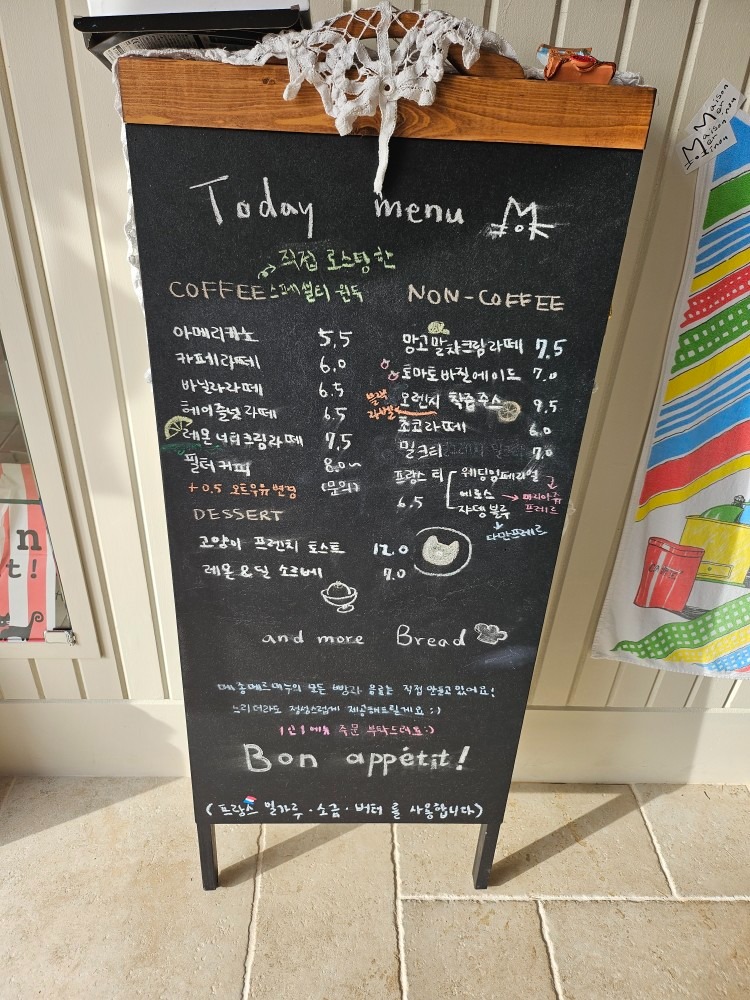 Today menu
직접 로스팅 한
COFFEE 스페셜티 원두
아메리카노 5.5
카페라떼 6.0
바닐라라떼 6.5
헤이즐넛 라떼 6.5
레몬 너티크림라떼 7.5
필터커피 8.0~
(문의)
+0.5 오트우유 변경
NON-COFFEE
망고말차크림라떼 7.5
토마토바질에이드 7.0
블랙
라벨
오렌지 착즙주스 9.5
초코라떼 6.0
밀크티 7.0
프랑스 티 6.5
웨딩임페리얼
에로스
마리아쥬
프레르
쟈뎅블루
다만프레르
DESSERT
고양이 프렌치 토스트 12.0
레몬&딜 소르베 7.0
and more Bread
모든 빵과 음료는 직접 만들고 있어요!
느리더라도 정성스럽게 제공해드릴게요 :)
1인 1메뉴 주문 부탁드려요:)
Bon appétit!
(프랑스 밀가루·소금·버터 를 사용합니다)
Maison
Mer
Hotinou
n
t!